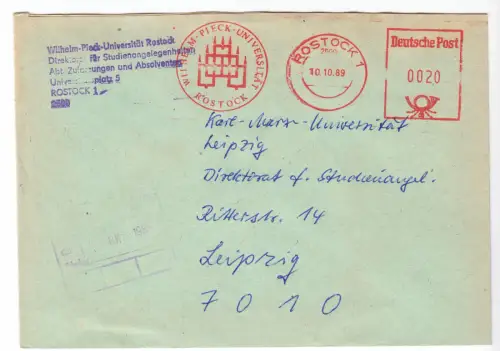 Wilhelm-Pieck-Universität Rostock
Direktorat für Studienangelegenheiten
Abt. Zulassungen und Absolventen
Universitätsplatz 5
ROSTOCK 1
2500
WILHELM-PIECK-UNIVERSITÄT
ROSTOCK
ROSTOCK 1
2500
10.10.89
Deutsche Post
0020
Karl-Marx-Universität
Leipzig
Direktorat f. Studienangel.
Ritterstr. 14
Leipzig
7010